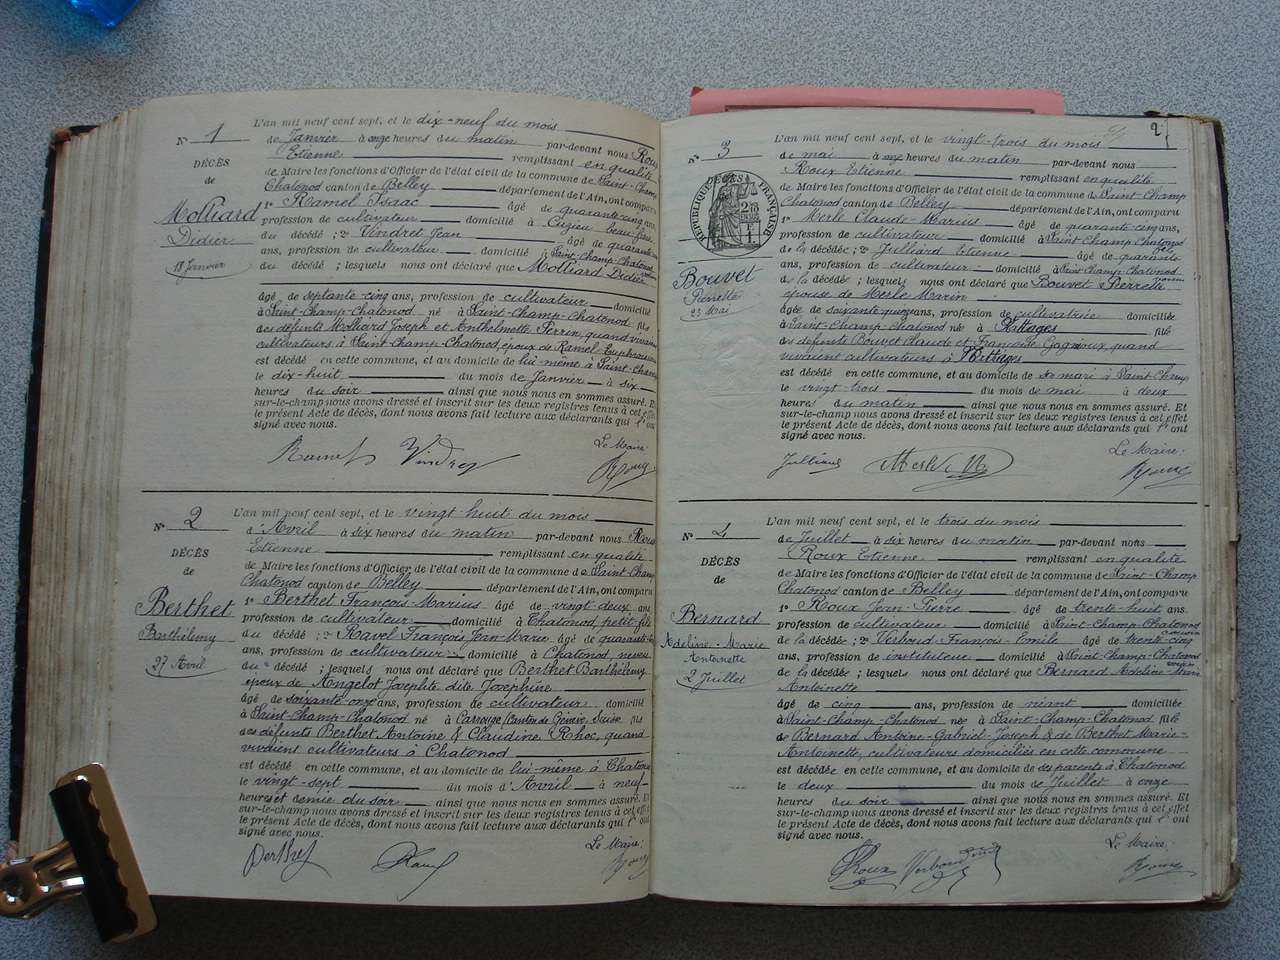 N° 1
DÉCÈS
de
Molliard
Didier
18 Janvier
L'an mil neuf cent sept, et le dix-neuf du mois
de Janvier à onze heures du matin par-devant nous Roux
Etienne remplissant en qualité
de Maire les fonctions d'Officier de l'état civil de la commune de Saint-Champ
Chatonod canton de Belley département de l'Ain, ont comparu
1° Ramel Isaac âgé de quarante-cinq ans,
profession de cultivateur domicilié à Cuzieu beau-frère
du décédé ; 2° Vindret Jean âgé de quarante
ans, profession de cultivateur domicilié à Saint-Champ-Chatonod voisin
du décédé ; lesquels nous ont déclaré que Molliard Didier
âgé de septante-cinq ans, profession de cultivateur domicilié
à Saint-Champ-Chatonod né à Saint-Champ-Chatonod fils
des défunts Molliard Joseph et Anthelmette Perrin, quand vivaient
cultivateurs à Saint-Champ-Chatonod, époux de Ramel Euphrosine
est décédé en cette commune, et au domicile de lui-même à Saint-Champ
le dix-huit du mois de Janvier à six
heures du soir ainsi que nous nous en sommes assuré. Et
sur-le-champ nous avons dressé et inscrit sur les deux registres tenus à cet effet
le présent Acte de décès, dont nous avons fait lecture aux déclarants qui l'ont
signé avec nous.
Le Maire:
Ramel Vindret Roux
N° 2
DÉCÈS
de
Berthet
Barthélemy
27 Avril
L'an mil neuf cent sept, et le vingt huit du mois
d'Avril à dix heures du matin par-devant nous Roux
Etienne remplissant en qualité
de Maire les fonctions d'Officier de l'état civil de la commune de Saint-Champ
Chatonod canton de Belley département de l'Ain, ont comparu
1° Berthet François-Marius âgé de vingt-deux ans,
profession de cultivateur domicilié à Chatonod, petit-fils
du décédé ; 2° Ravel François Jean-Marie âgé de quarante
ans, profession de cultivateur domicilié à Chatonod, neveu
du décédé ; lesquels nous ont déclaré que Berthet Barthélemy
époux de Angelot Josephte dite Joséphine
âgé de soixante-onze ans, profession de cultivateur domicilié
à Saint-Champ-Chatonod né à Carrouge, Canton de Genève, Suisse fils
des défunts Berthet Antoine & Claudine Rhoc, quand
vivaient cultivateurs à Chatonod
est décédé en cette commune, et au domicile de lui-même à Chatonod
le vingt-sept du mois d'Avril à neuf
heures et demie du soir ainsi que nous nous en sommes assuré. Et
sur-le-champ nous avons dressé et inscrit sur les deux registres tenus à cet effet
le présent Acte de décès, dont nous avons fait lecture aux déclarants qui l'ont
signé avec nous.
Le Maire:
Berthet Ravel Roux
2
N° 3
DÉCÈS
RÉPUBLIQUE FRANÇAISE
Bouvet
Pierrette
23 Mai
L'an mil neuf cent sept, et le vingt-trois du mois
de mai à onze heures du matin par-devant nous
Roux Etienne remplissant en qualité
de Maire les fonctions d'Officier de l'état civil de la commune de Saint-Champ
Chatonod canton de Belley département de l'Ain, ont comparu
1° Merle Claude-Marius âgé de quarante cinq ans,
profession de cultivateur domicilié à Saint-Champ Chatonod
de la décédée ; 2° Julliard Etienne âgé de quarante
ans, profession de cultivateur domicilié à Saint-Champ-Chatonod voisin
de la décédée ; lesquels nous ont déclaré que Bouvet Pierrette
épouse de Merle Marin
âgée de soixante ans, profession de cultivatrice domiciliée
à Saint-Champ-Chatonod née à Pettages fille
des défunts Bouvet Claude et Françoise Gagnioux, quand
vivaient cultivateurs à
est décédé en cette commune, et au domicile de son mari à Saint-Champ
le vingt-trois du mois de mai à deux
heures du matin ainsi que nous nous en sommes assuré. Et
sur-le-champ nous avons dressé et inscrit sur les deux registres tenus à cet effet
le présent Acte de décès, dont nous avons fait lecture aux déclarants qui l'ont
signé avec nous.
Le Maire:
Julliard Merle Roux
N° 4
DÉCÈS
de
Bernard
Adeline-Marie
Antoinette
2 Juillet
L'an mil neuf cent sept, et le trois du mois
de Juillet à dix heures du matin par-devant nous
Roux Etienne remplissant en qualité
de Maire les fonctions d'Officier de l'état civil de la commune de Saint-Champ
Chatonod canton de Belley département de l'Ain, ont comparu
1° Roux Jean-Pierre âgé de trente-huit ans,
profession de cultivateur domicilié à Saint-Champ-Chatonod cousin
de la décédée ; 2° Verboud François-Emile âgé de trente-cinq
ans, profession de instituteur domicilié à Saint-Champ-Chatonod
de la décédée ; lesquels nous ont déclaré que Bernard Adeline-Marie
Antoinette
âgée de cinq ans, profession de néant domiciliée
à Saint-Champ-Chatonod née à Saint-Champ-Chatonod fille
de Bernard Antoine-Gabriel-Joseph & de Berthet Marie-
Antoinette, cultivateurs domiciliés en cette commune
est décédée en cette commune, et au domicile de ses parents à Chatonod
le deux du mois de Juillet à onze
heures du soir ainsi que nous nous en sommes assuré. Et
sur-le-champ nous avons dressé et inscrit sur les deux registres tenus à cet effet
le présent Acte de décès, dont nous avons fait lecture aux déclarants qui l'ont
signé avec nous.
Le Maire:
Roux Verboud Roux